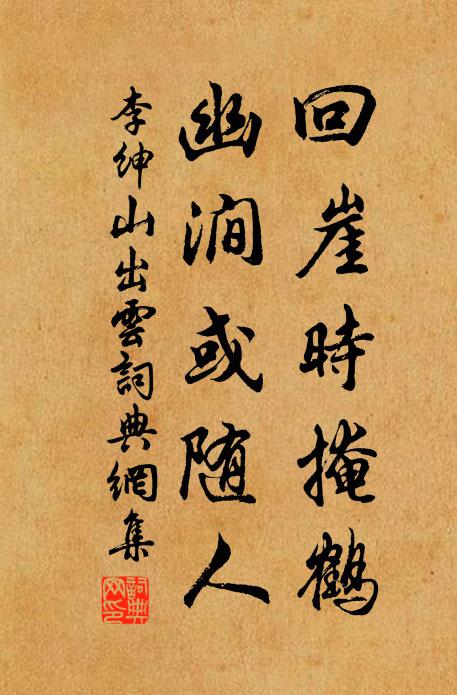 回崖時掩鶴
幽澗或随人
李紳山出雲詞典網集
詞典网印